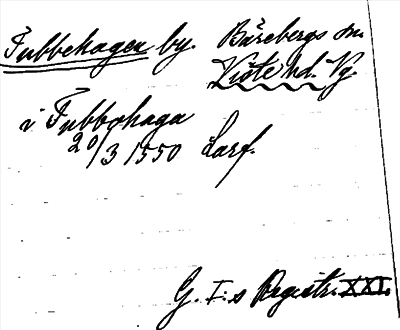 Fubbehagen by. Bärebergs sn.
Viste hd. Vg.
i Fubbohaga
20/3 1550 Larf.
G. I:s Registr. XXI.